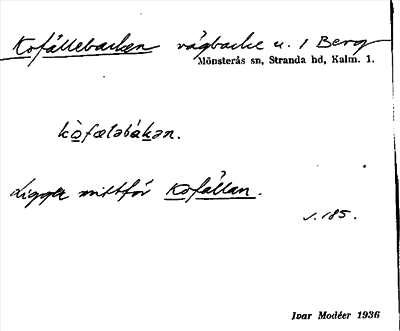 Kofållebacken vägbacke u. 1 Berg
Mönsterås sn, Stranda hd, Kalm. l.
kòfæləbákən.
Ligger mittför Kofållan.
s. 185.
Ivar Modéer 1936